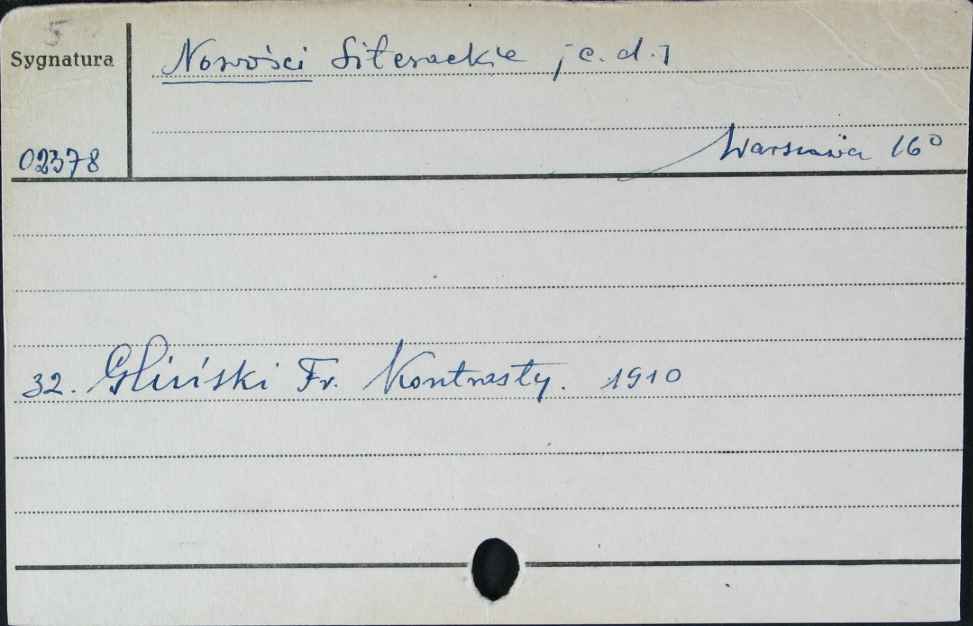 5
Sygnatura
Nowości Literackie [c. d.]
02378
Warszawa 16°
32. Gliński Fr. Kontrasty. 1910